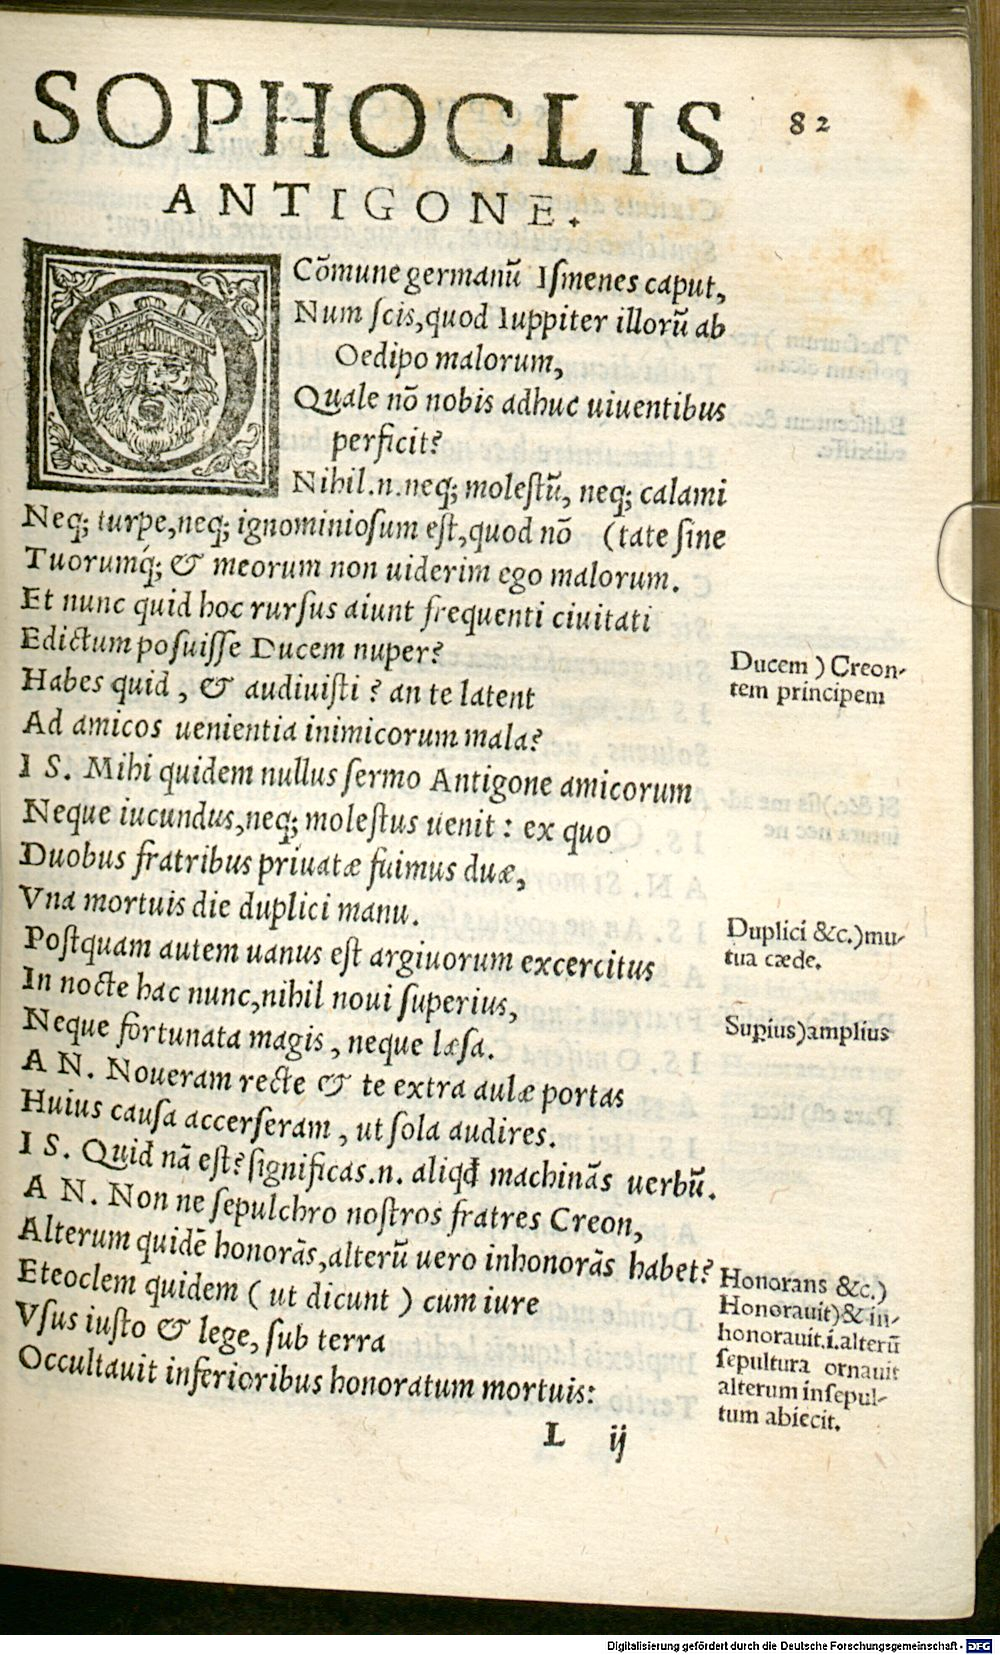 SOPHOCLIS
82
ANTIGONE.
O Cõmune germanũ Ismenes caput,
Num scis, quod Iuppiter illorũ ab
Oedipo malorum,
Quale nõ nobis adhuc uiuentibus
perficit?
Nihil.n.neq; molestũ, neq; calami
Neq; turpe, neq; ignominiosum est, quod nõ (tate sine
Tuorumq́; & meorum non uiderim ego malorum.
Et nunc quid hoc rursus aiunt frequenti ciuitati
Edictum posuisse Ducem nuper?
Ducem ) Creon-
tem principem
Habes quid, & audiuisti? an te latent
Ad amicos uenientia inimicorum mala?
I S. Mihi quidem nullus sermo Antigone amicorum
Neque iucundus, neq; molestus uenit: ex quo
Duobus fratribus priuatæ fuimus duæ,
Vna mortuis die duplici manu.
Duplici &c.) mu-
tua cæde.
Postquam autem uanus est argiuorum excercitus
In nocte hac nunc, nihil noui superius,
Supius) amplius
Neque fortunata magis, neque læsa.
A N. Noueram recte & te extra aulæ portas
Huius causa accerseram, ut sola audires.
I S. Quid nã est? significas.n. aliqd machinãs uerbũ.
A N. Non ne sepulchro nostros fratres Creon,
Alterum quidẽ honorãs, alterũ uero inhonorãs habet?
Eteoclem quidem ( ut dicunt ) cum iure
Vsus iusto & lege, sub terra
Occultauit inferioribus honoratum mortuis:
Honorans &c.)
Honorauit) & in-
honorauit.i.alterũ
sepultura ornauit
alterum insepul-
tum abiecit.
L ij
Digitalisierung gefördert durch die Deutsche Forschungsgemeinschaft - DFG